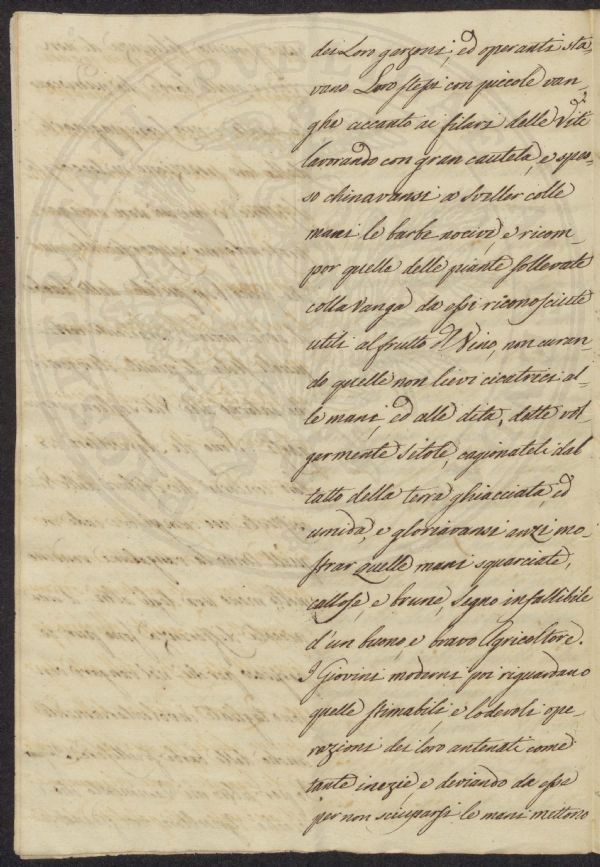 dei Loro garzoni, ed operanti sta-
vano Loro stessi con piccole van-
ghe accanto ai filari delle Viti
lavorando con gran cautela, e spes-
so chinavansi a sveller colle
mani le barbe nocive, e ricom-
por quelle delle piante sollevate
colla Vanga da essi riconosciute
utili al frutto d Vino, non curan-
do quelle non lievi cicatrici al-
le mani, ed alle dita, dette vol-
germente Setole, cagionateli dal
tatto della terra ghiacciata, ed
umida, e gloriavansi anzi mo-
strar quelle mani squarciate,
callose, e brune, segno infallibile
d'un buono, e bravo Agricoltore.
I Giovini moderni poi riguardano
quelle stimabili, e lodevoli ope-
razioni dei loro antenati come
tante inezie, e deviando da esse
per non sciuparsi le mani mettono